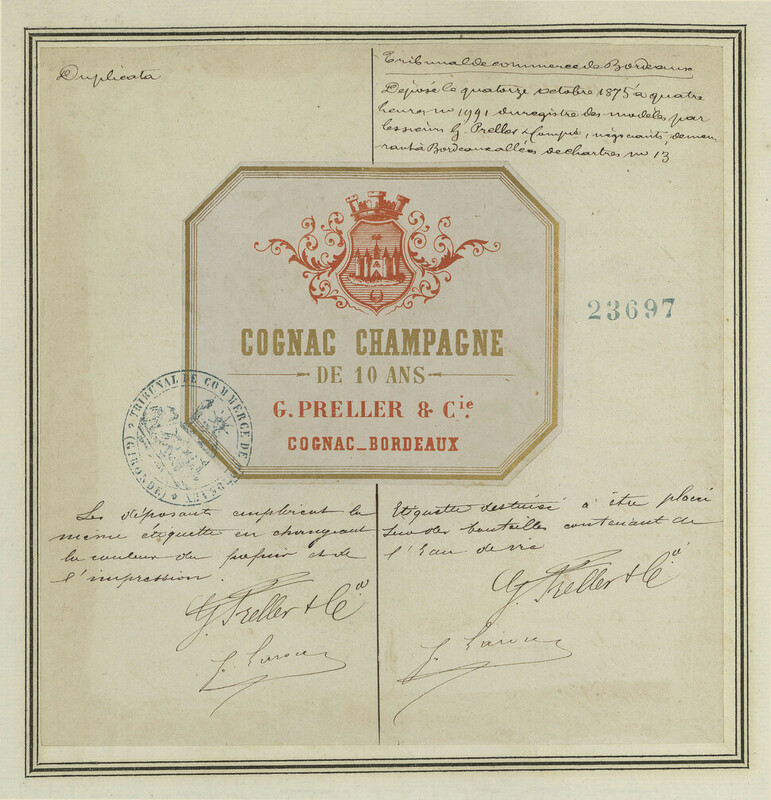 Duplicata
Tribunal de commerce de Bordeaux
Déposé le quatorze octobre 1875 à quatre
heures no 1991 du registre des modèles par
les sieurs G. Preller & Compie, négociants, demeu
rant à Bordeaux allées de chartres no 13
COGNAC CHAMPAGNE
DE 10 ANS
G. PRELLER & Cie.
COGNAC_BORDEAUX
23697
TRIBUNAL DE COMMERCE DE
(GIRONDE)
Les déposants emploient la
même étiquette en changeant
la couleur du papier et de
l'impression.
G. Preller & Cie
Etiquette destinée à être placé
sur des bouteilles contenant de
l'Eau de vie
G. Preller & Cie